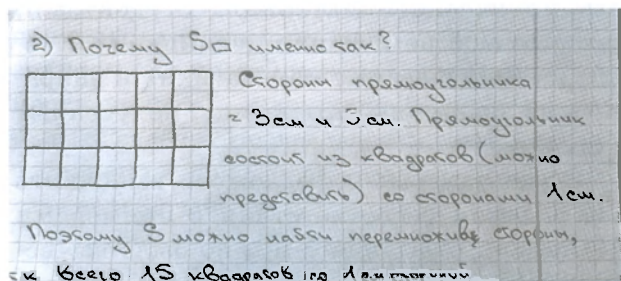 2) Почему S▭ именно так?
Стороны прямоугольника
= 3 см и 5 см. Прямоугольник
состоит из квадратов (можно
представить) со сторонами 1 см.
Поэтому S можно найти перемножив стороны,
к всего 15 квадратов со